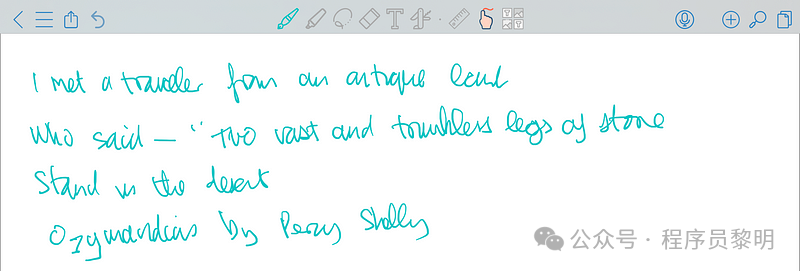 I met a traveler from an antique land
Who said — "Two vast and trunkless legs of stone
Stand in the desert
Ozymandias by Percy Shelly
公众号 · 程序员黎明